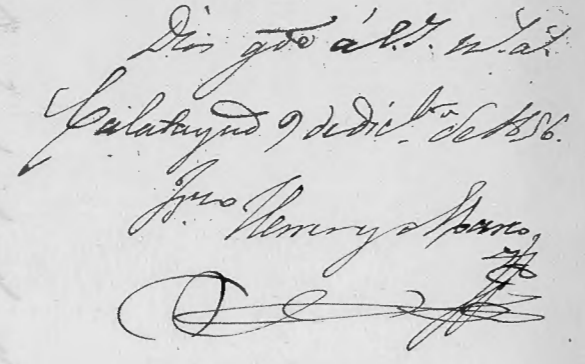 Dios gde á V.I. m. a.
Calatayud 9 de dic.bre de 1856.
Fran.co Herrer y Marco